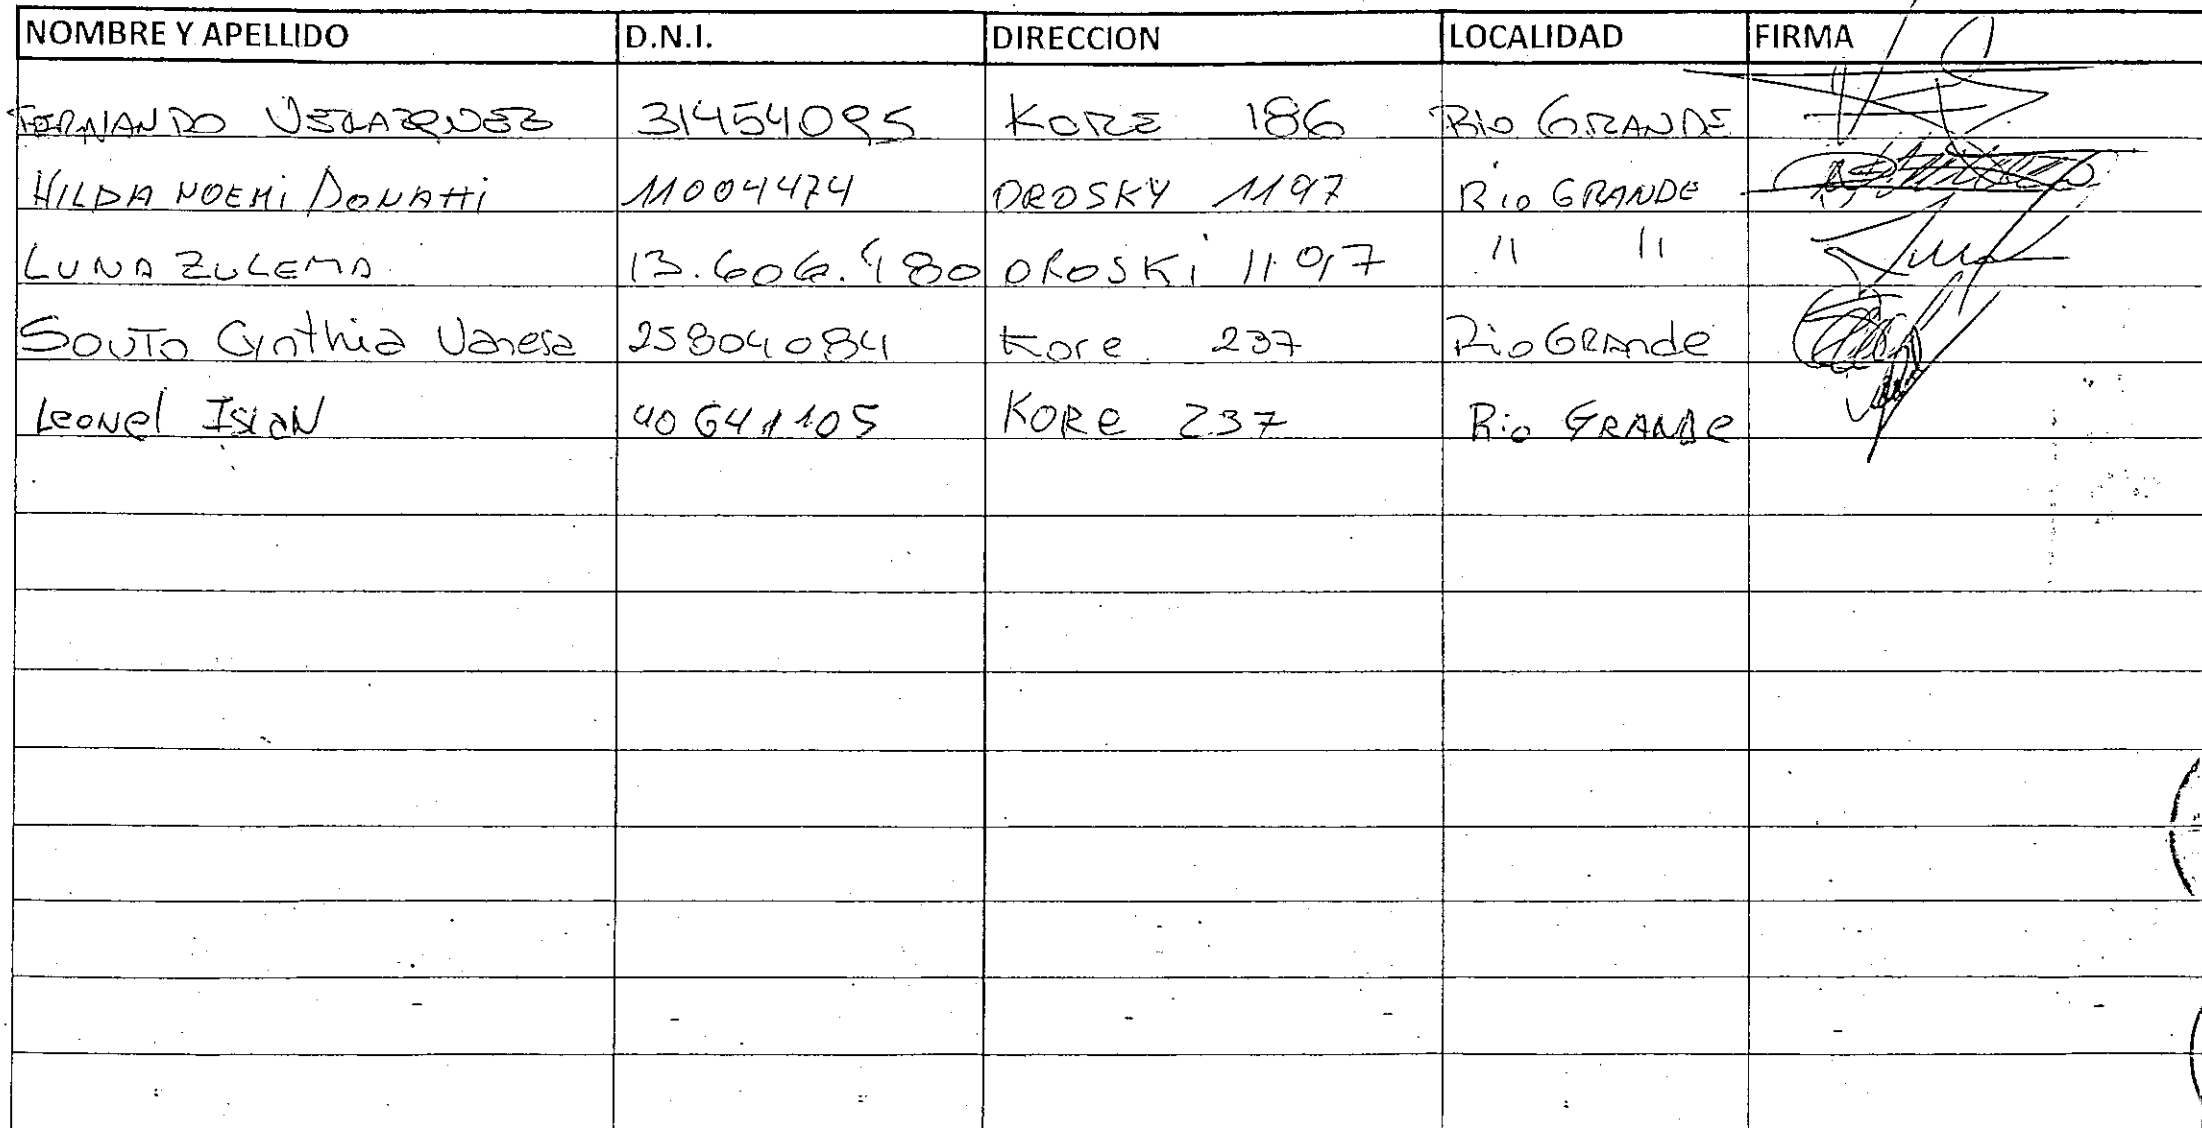 NOMBRE Y APELLIDO D.N.I. DIRECCION LOCALIDAD FIRMA
FERNANDO VELAZQUEZ 31454095 KORE 186 RIO GRANDE
HILDA NOEMI DONATTI 11004474 OROSKY 1197 Rio GRANDE
LUNA ZULEMA 13.606.480 OROSKi 1197 " "
SOUTO Cynthia Vanesa 25804084 Kore 237 Rio GRAnde
Leonel ISlaN 40641105 KORe 237 Rio GRANDe